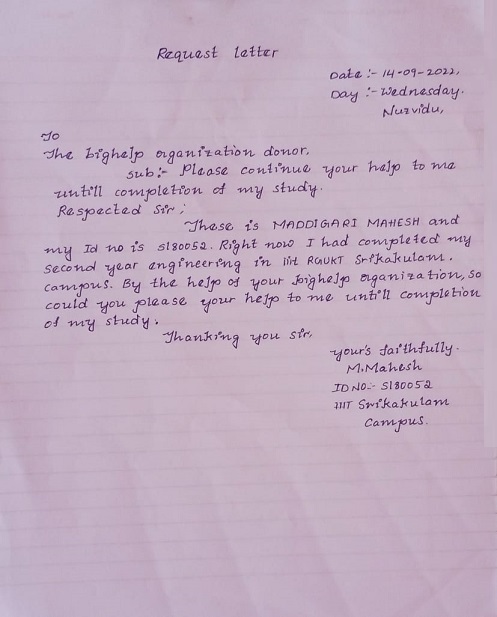 Request letter
Date :- 14-09-2022,
Day :- Wednesday.
Nuzvidu,
To
The bighelp organization donor.
sub:- Please continue your help to me
untill completion of my study.
Respected Sir,
These is MADDIGARI MAHESH and
my Id no is S180052. Right now I had completed my
second year engineering in iiit RGUKT Srikakulam.
campus. By the help of your bighelp organization, so
could you please your help to me untill completion
of my study.
Thanking you sir,
your's faithfully.
M.Mahesh
ID NO:- S180052
IIIT Srikakulam
Campus.